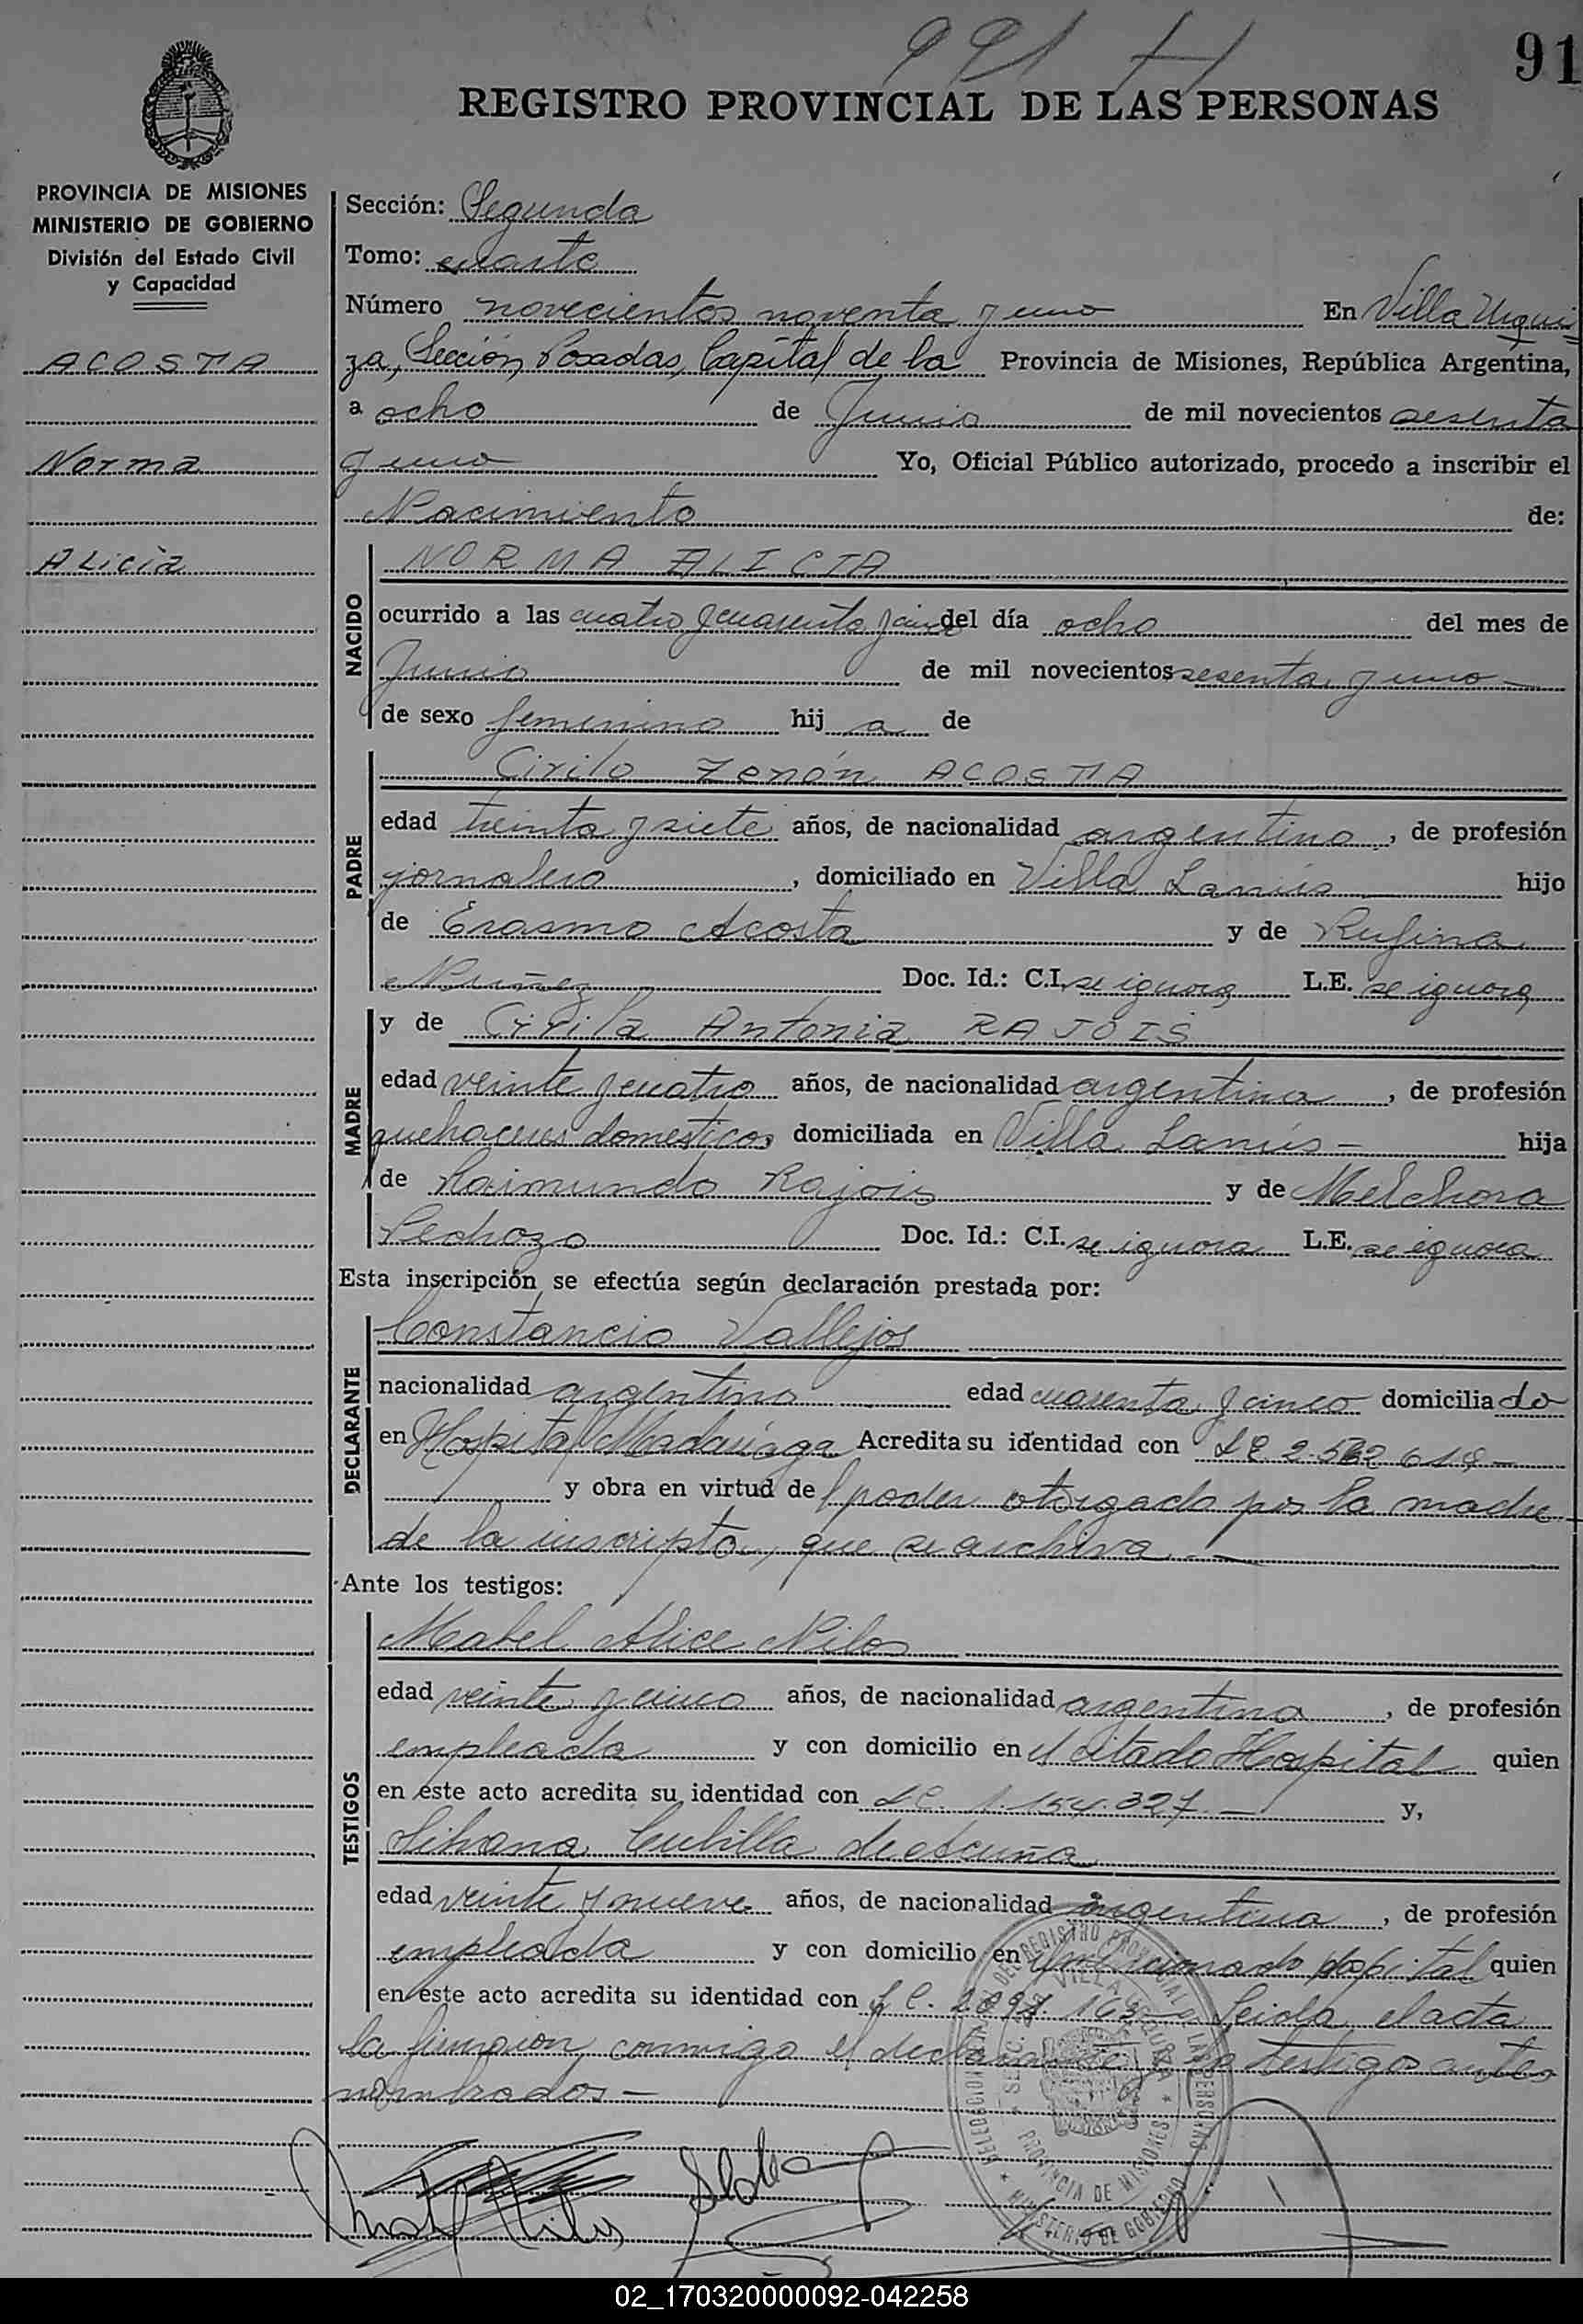 991 H
91
REGISTRO PROVINCIAL DE LAS PERSONAS
PROVINCIA DE MISIONES
MINISTERIO DE GOBIERNO
División del Estado Civil
y Capacidad
ACOSTA
Norma
Alicia
Sección: Segunda
Tomo: cuarto
Número novecientos noventa y uno En Villa Urqui
za, Sección, Posadas, Capital de la Provincia de Misiones, República Argentina,
a ocho de Junio de mil novecientos sesenta
y uno Yo, Oficial Público autorizado, procedo a inscribir el
Nacimiento de:
NACIDO
NORMA ALICIA
ocurrido a las cuatro y cuarenta y cinco del día ocho del mes de
Junio de mil novecientos sesenta y uno —
de sexo femenino hij a de
PADRE
Cirilo Zenón ACOSTA
edad treinta y siete años, de nacionalidad argentino, de profesión
jornalero, domiciliado en Villa Lanús hijo
de Erasmo Acosta y de Rufina
Nuñez Doc. Id.: C.I. se ignora L.E. se ignora
MADRE
y de Cirila Antonia RAJOIS
edad veinte y cuatro años, de nacionalidad argentina, de profesión
quehaceres domesticos domiciliada en Villa Lanús — hija
de Raimundo Rajois y de Melchora
Pedrozo Doc. Id.: C.I. se ignora L.E. se ignora
Esta inscripción se efectúa según declaración prestada por:
DECLARANTE
Constancio Vallejos
nacionalidad argentino edad cuarenta y cinco domicilia do
en Hospital Madariaga Acredita su identidad con L E. 2.5
y obra en virtud de l poder otorgado por la madre
de la inscripta, que se archiva. —
Ante los testigos:
TESTIGOS
Mabel Alice Niles
edad veinte y cinco años, de nacionalidad argentina, de profesión
empleada y con domicilio en el citado Hospital quien
en este acto acredita su identidad con L C. 1.154.327 — y,
Silvana Cubilla de Acuña
edad veinte y nueve años, de nacionalidad argentina, de profesión
empleada y con domicilio en el mencionado Hospital quien
en este acto acredita su identidad con L C. Leida el acta
la firmaron conmigo el declarante y los testigos antes
nombrados —
DELEGACION DEL REGISTRO PROVINCIAL DE LAS PERSONAS
SECC. VILLA URQUIZA
PROVINCIA DE MISIONES
MINISTERIO DE GOBIERNO
02_170320000092-042258